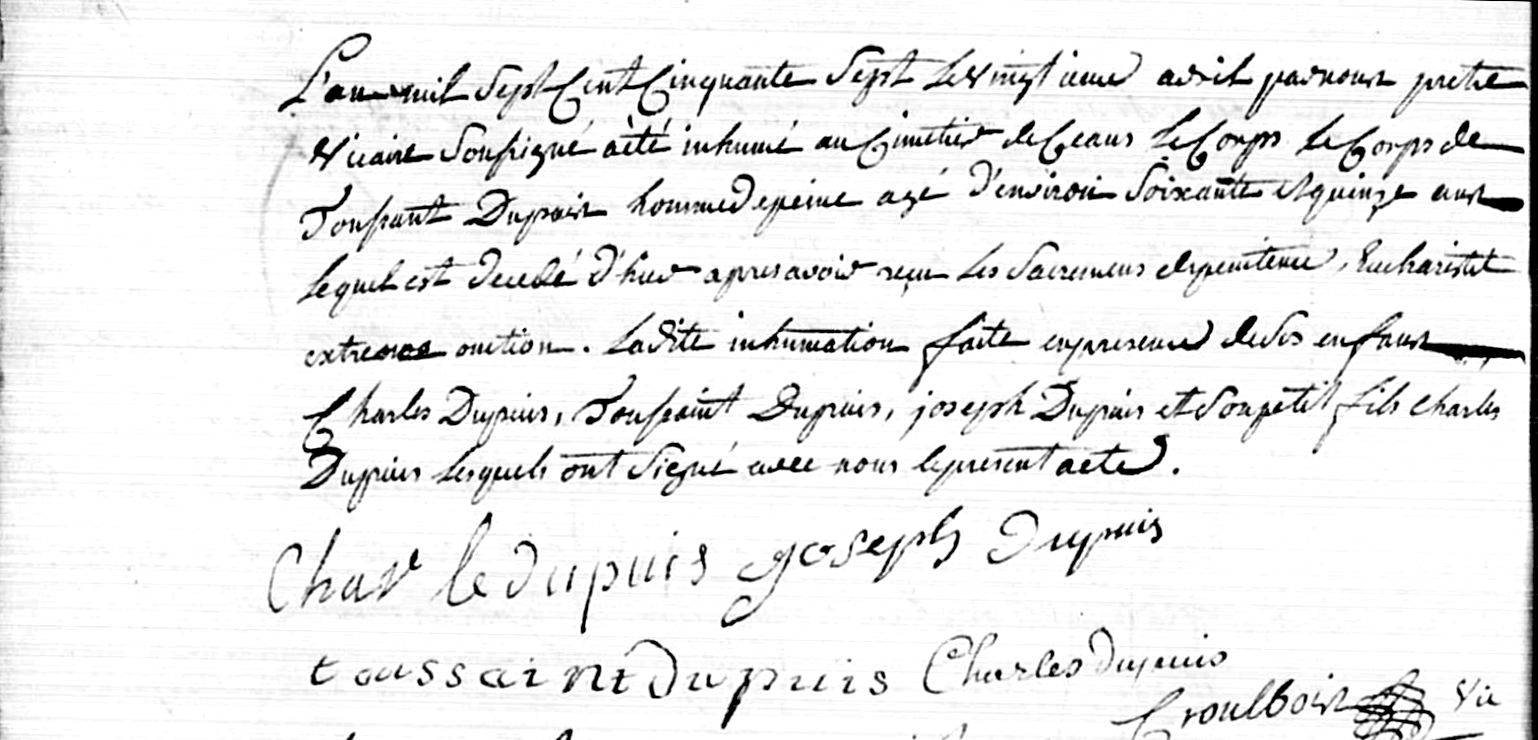 L'an mil Sept Cent Cinquante Sept le vingtieme avril par nous pretre
vicaire Soussigné a été inhumé au Cimetier de Ceans le Corps le Corps de
Toussant Dupuis homme de peine agé d'environ Soixante et quinze ans
lequel est decedé d'hier apres avoir reçu les Sacremens de penitence, Eucharistie
extreme onction. Ladite inhumation faite en presence de Ses enfans
Charles Dupuis, Toussaint Dupuis, joseph Dupuis et Son petit fils charles
Dupuis lesquels ont Signé avec nous le present acte.
Char le dupuis joseph Dupuis
toussaint Dupuis Charles dupuis
Croulbois vic